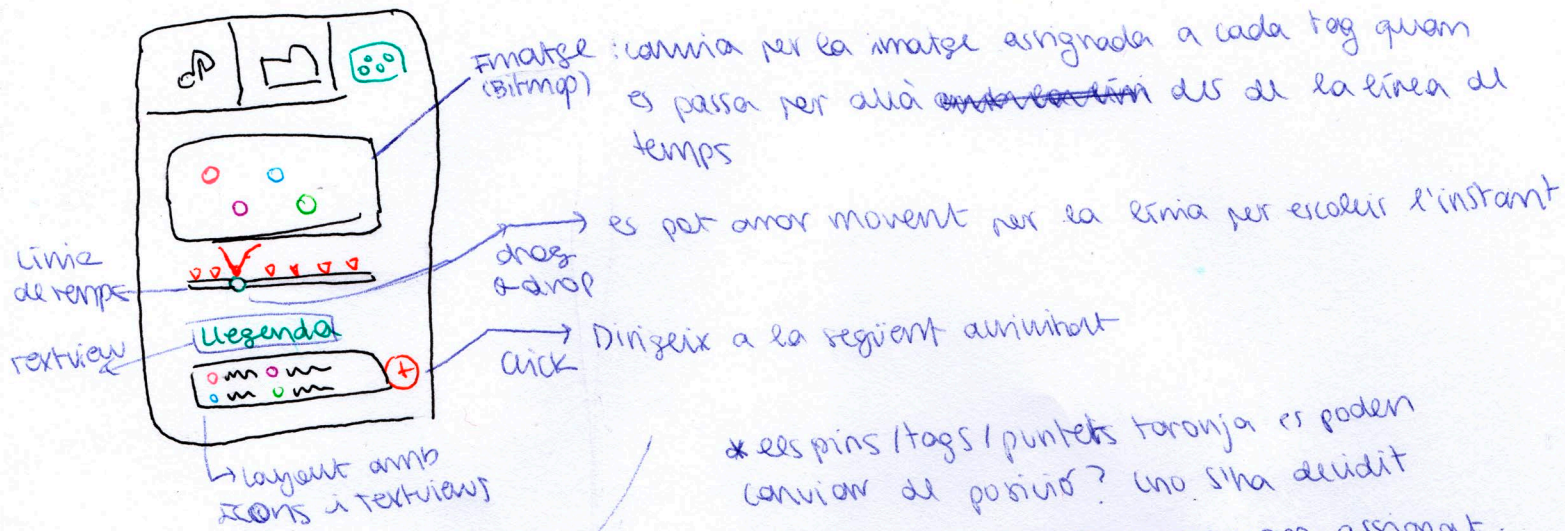 Imatge : canvia per la imatge assignada a cada tag quan
(Bitmap)
es passa per allà des de la línea de
temps
Línia
de temps
drag
&drop
es pot anar movent per la línia per escollir l'instant
Llegenda
textview
click
Dirigeix a la següent activitat
+
Layout amb
icons i textviews
* els pins/tags/puntets taronja es poden
canviar de posició? (no s'ha decidit
assignat